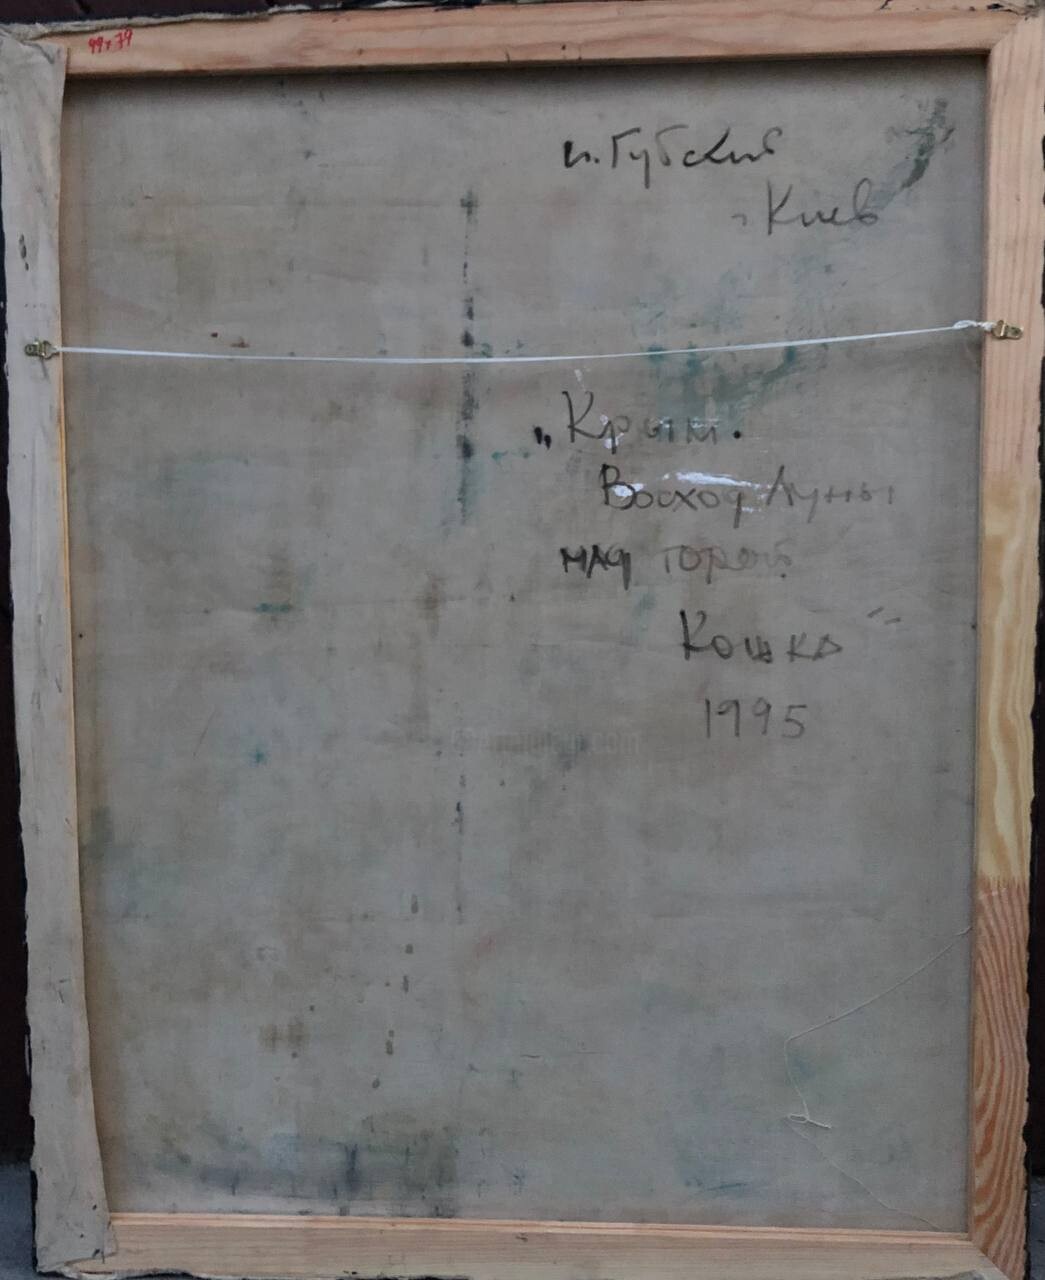 99x79
И. Губский
г. Киев
„Крым.
Восход Луны
над горой
Кошка"
1995